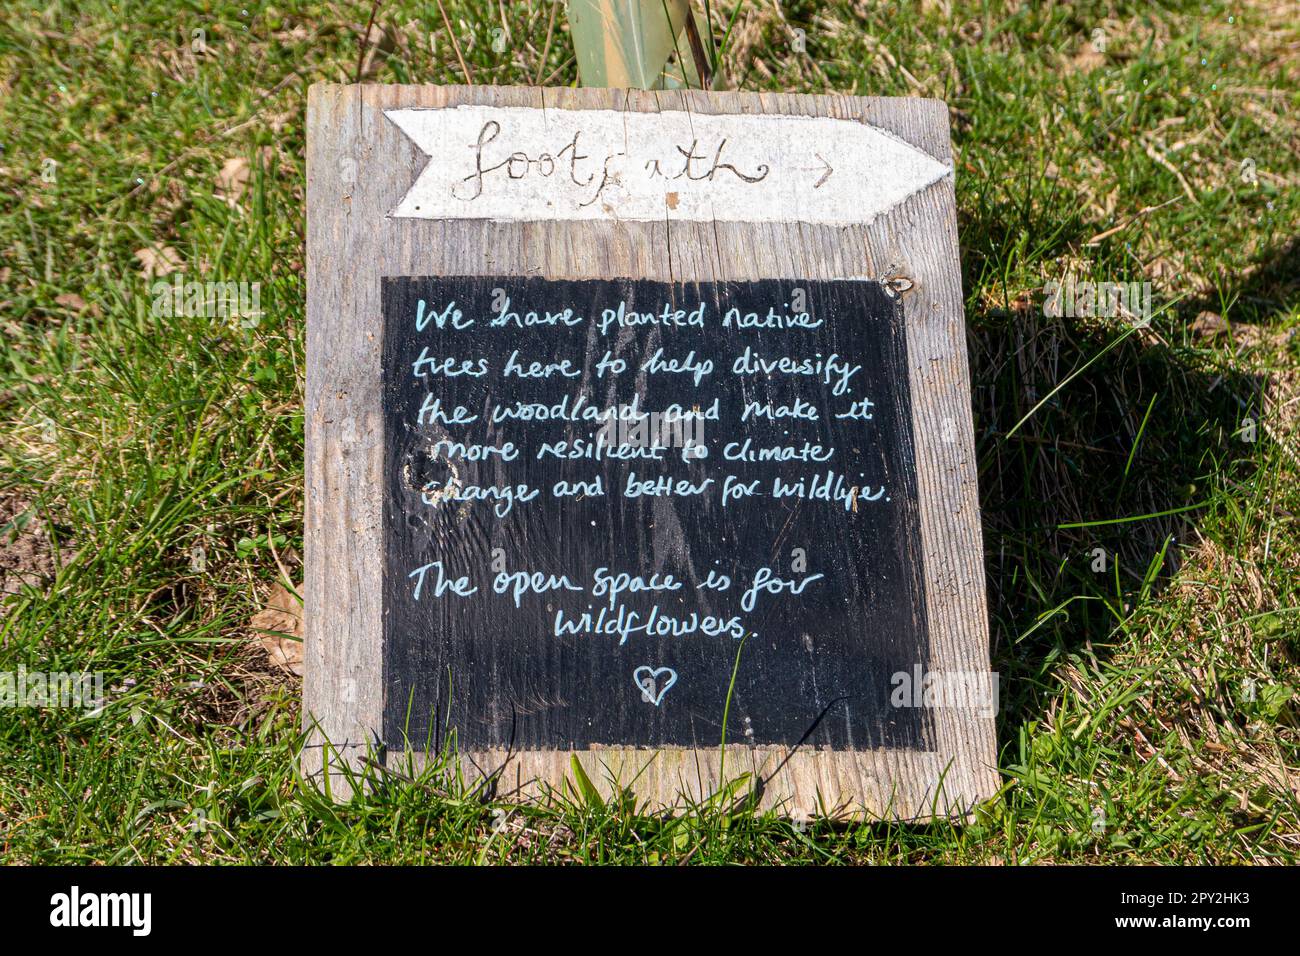 footpath →
We have planted native
trees here to help diversify
the woodland and make it
more resilient to climate
change and better for wildlife.
The open space is for
wildflowers.
alamy
Image ID: 2PY2HK3
www.alamy.com